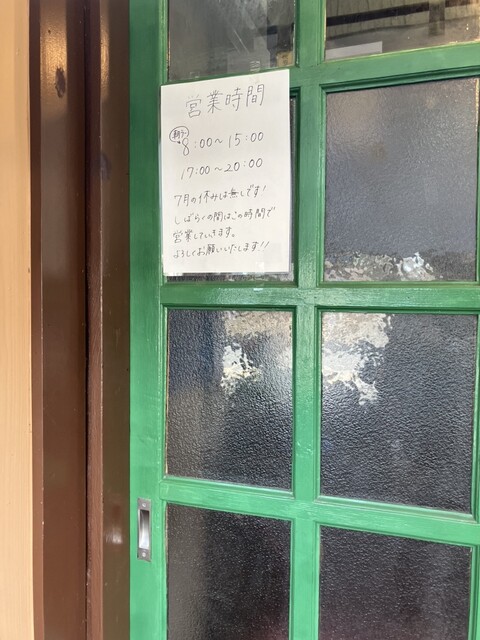 営業時間
朝ラー
8:00~15:00
17:00~20:00
7月の休みは無しです!
しばらくの間はこの時間で
営業していきます。
よろしくお願いいたします!!